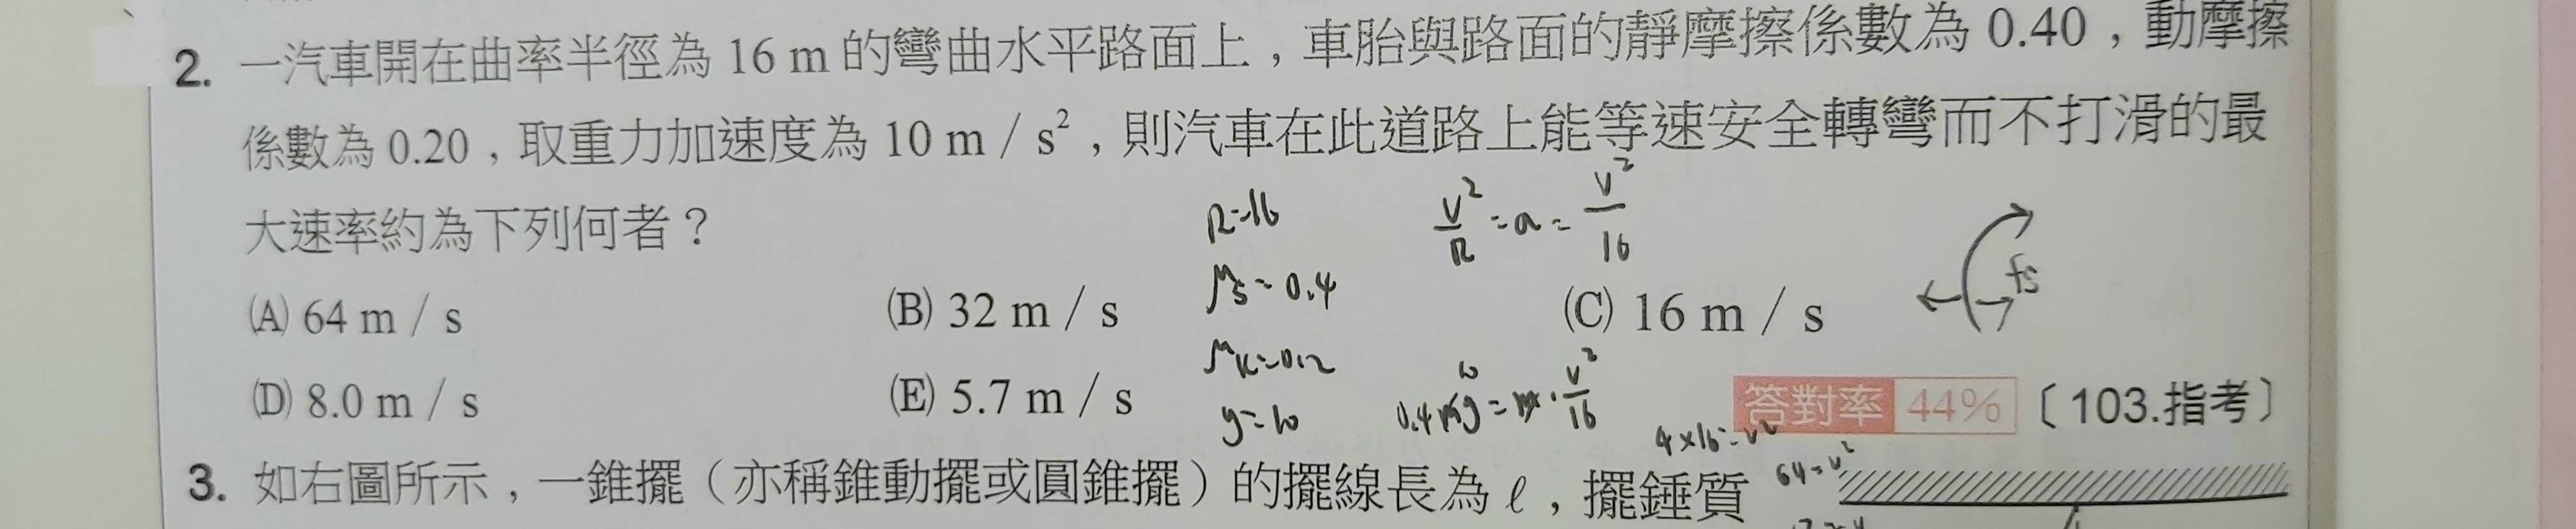 2. 一汽車開在曲率半徑為 16 m 的彎曲水平路面上，車胎與路面的靜摩擦係數為 0.40，動摩擦
係數為 0.20，取重力加速度為 10 m / s²，則汽車在此道路上能等速安全轉彎而不打滑的最
大速率約為下列何者？
R=16
v²/R = a = v²/16
(A) 64 m / s (B) 32 m / s (C) 16 m / s
μs=0.4
fs
μk=0.2
(D) 8.0 m / s (E) 5.7 m / s
g=10
0.4mg = m · v²/16
10
答對率 44% 〔103.指考〕
4×16=v²
64=v²
3. 如右圖所示，一錐擺（亦稱錐動擺或圓錐擺）的擺線長為 ℓ，擺錘質